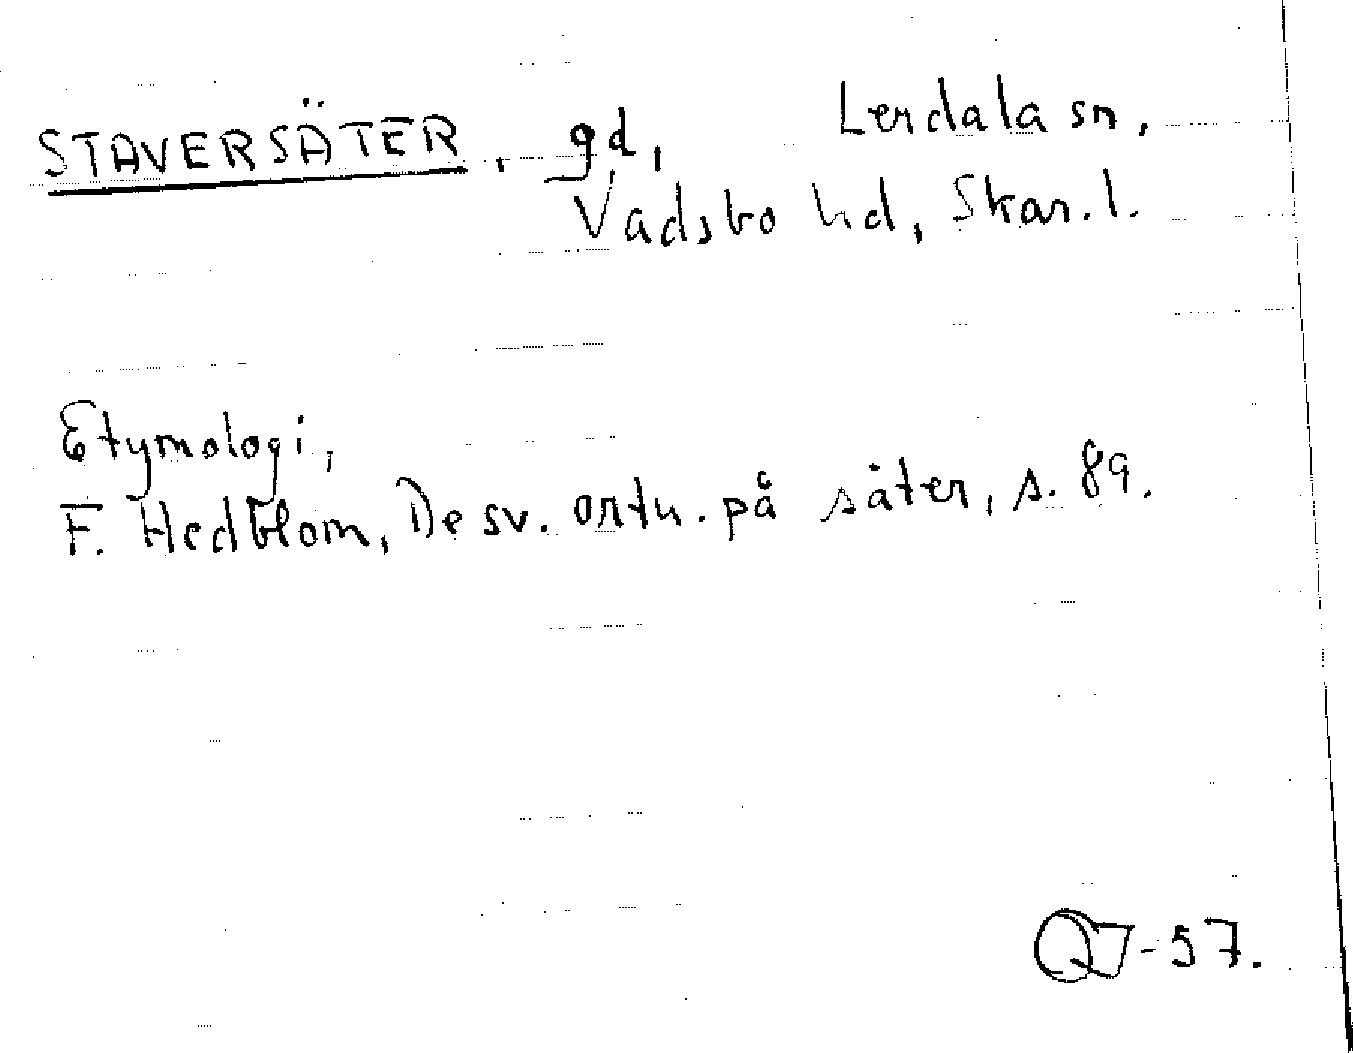 STAVERSÄTER, gd, Lerdala sn,
Vadsbo hd, Skar. l.
Etymologi,
F. Hedblom, De sv. ortn. på säter, s. 89.
-57.